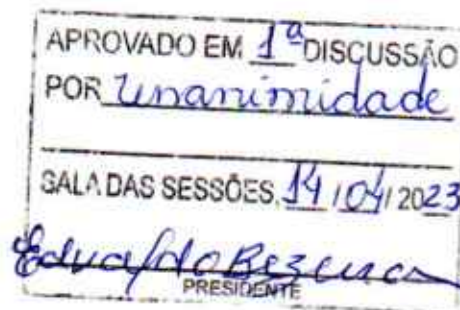 APROVADO EM 1ª DISCUSSÃO
POR Unanimidade
SALA DAS SESSÕES, 14/04/2023
Edvaldo Bezerra
PRESIDENTE